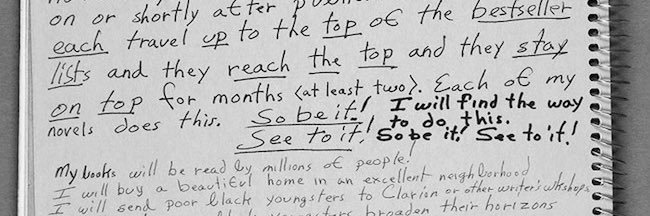 on or shortly after
each travel up to the top of the bestseller
lists and they reach the top and they stay
on top for months (at least two). Each of my
novels does this. So be it! I will find the way
to do this.
See to it! So be it! See to it!
My books will be read by millions of people!
I will buy a beautiful home in an excellent neighborhood
I will send poor black youngsters to Clarion or other writer's wkshops
black youngsters broaden their horizons